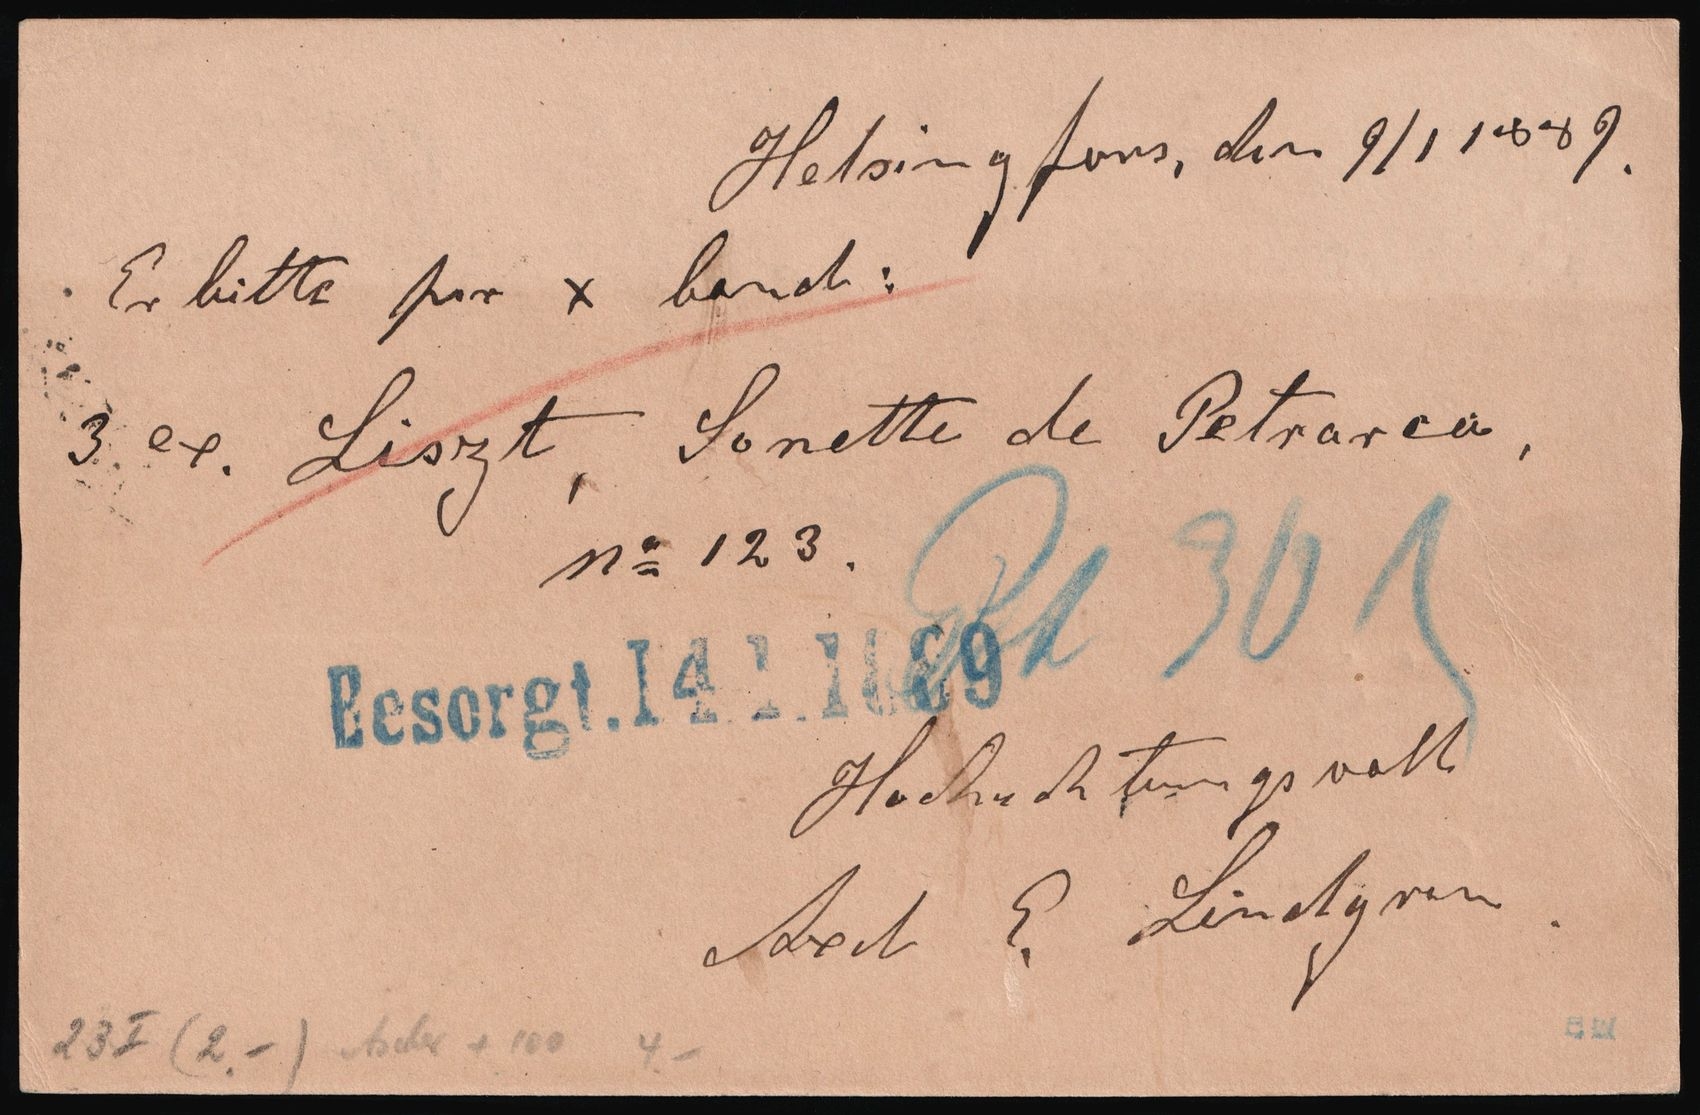 Helsingfors, den 9/1 1889.
Erbitte per x band:
3 ex. Liszt, Sonette de Petrarca,
no 123.
30
Besorgt. 14. 1. 1889
Hochachtungsvoll
Axel E. Lindgren.
23 I (2.-) Ascher + 100 4-